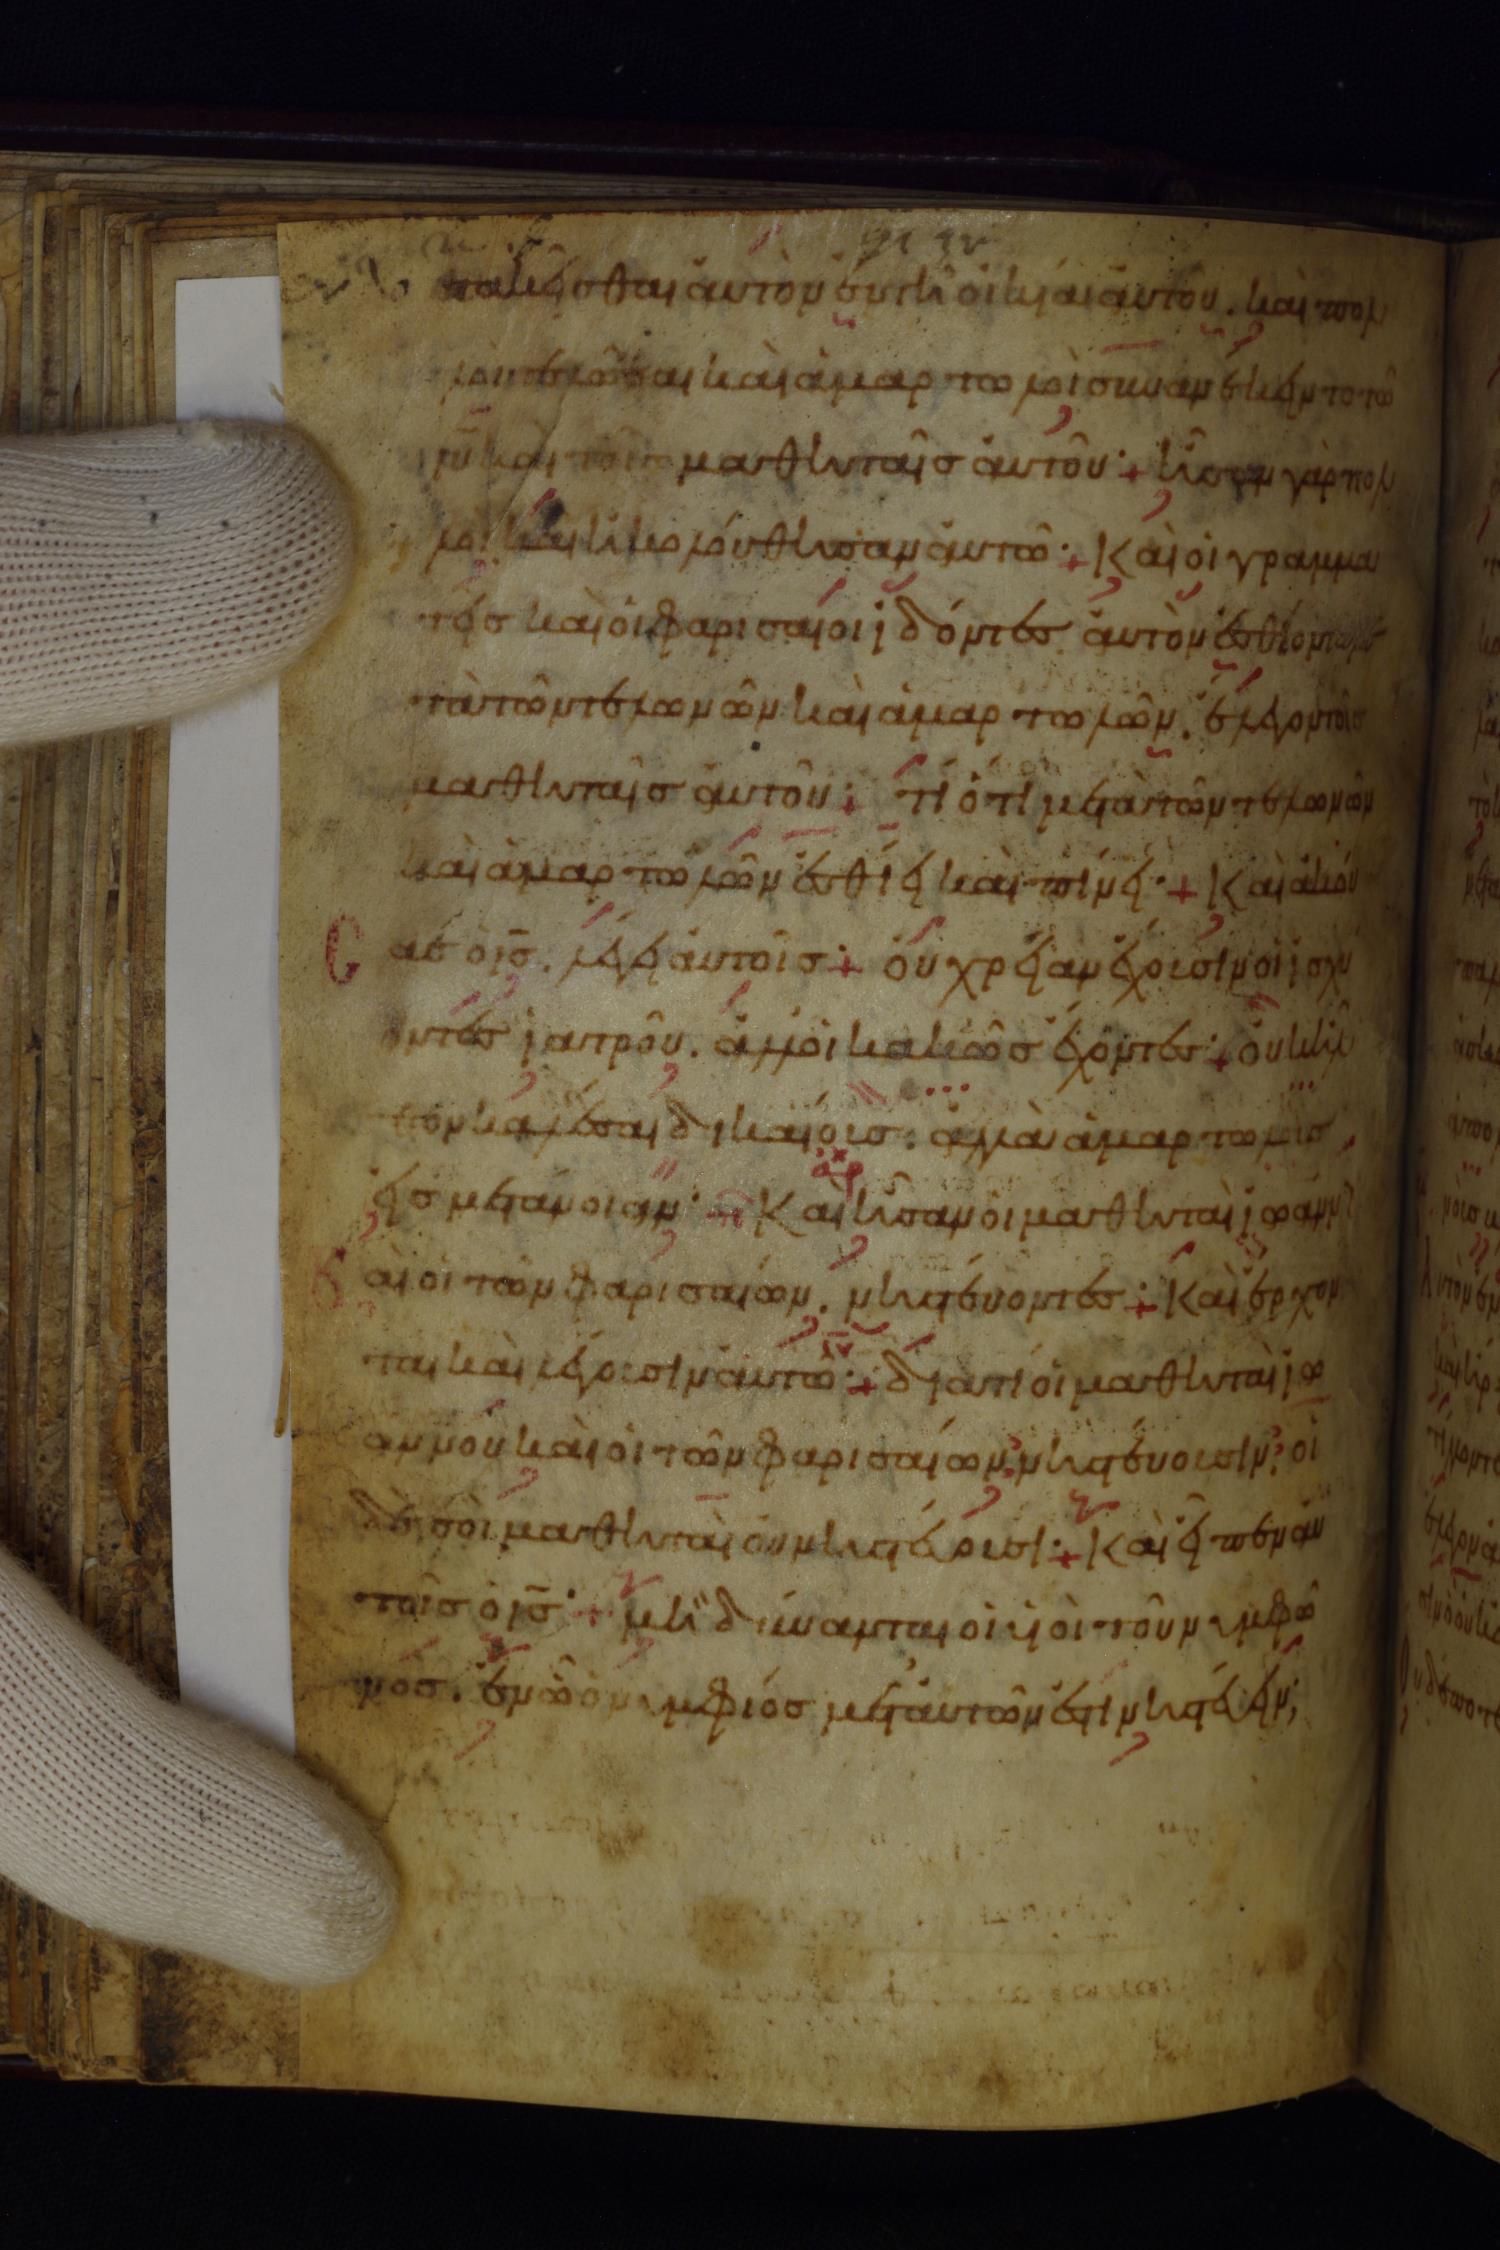 κατακεῖσθαι ἀυτὸν ἐν τῆ οἰκίαι ἀυτοῦ. καὶ πολ
λοὶ τελῶναι καὶ ἁμαρτωλοὶ συνανέκειντο τῶ
ιῦ καὶ τοῖσ μαθηταῖσ ἀυτοῦ· + ἦσαν γὰρ πολ
λοὶ καὶ ἠκολούθησαν ἀυτῶ· + Καὶ οἱ γραμμα
τεῖσ καὶ οἱ φαρισαίοι ἰδόντεσ ἀυτὸν ἐσθίοντα με
τὰ τῶν τελωνῶν καὶ ἁμαρτωλῶν. ἔλεγον τοῖσ
μαθηταῖσ ἀυτοῦ· + τί ὅτι μετὰ τῶν τελωνῶν
καὶ ἁμαρτωλῶν ἐσθίει καὶ πίνει· + Καὶ ἀκού
σασ ὁ ισ. λέγει ἀυτοῖσ· + ὀυ χρείαν ἔχουσιν οἱ ἰσχύ
οντεσ ἰατροῦ. ἀλλ οἱ κακῶσ ἔχοντεσ· + ὀυκ ἦλ
θον καλέσαι δικαίουσ. ἀλλὰ ἁμαρτωλοὺσ
εἰσ μετάνοιαν· + Καὶ ἦσαν οἱ μαθηταὶ ἰωάννου
καὶ οἱ τῶν φαρισαίων. νηστέυοντεσ· + Καὶ ἔρχον
ται καὶ λέγουσιν ἀυτῶ· + διατί οἱ μαθηταὶ ἰω
άννου καὶ οἱ τῶν φαρισαίων νηστέυουσιν; οἱ
δὲ σοὶ μαθηταὶ ὀυ νηστέυουσι· + Καὶ εἶπεν ἀυ
τοῖσ ὁ ισ· + μὴ δύνανται οἱ υἱοὶ τοῦ νυμφῶ
νοσ. ἐν ῶ ὁ νυμφίοσ μετ ἀυτῶν ἐστὶ νηστέυειν;